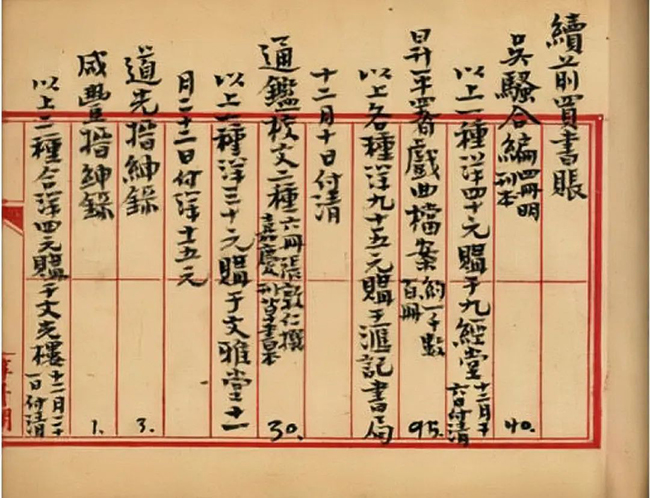 續前買書賬
吳騷合編四冊明刊本 40.
以上一種洋四十元購于九經堂十二月十六日付清
昇平署戲曲檔案約一千數百冊 95.
以上各種洋九十五元購于滙記書局
十二月十日付清
通鑑校文二種六冊張敦仁撰嘉慶刊皆書本 30.
以上一種洋三十元購于文雅堂十一
月二十二日付洋十五元
道光搢紳錄 3.
咸豐搢紳錄 1.
以上二種合洋四元購于文光樓十二月二十一日付清